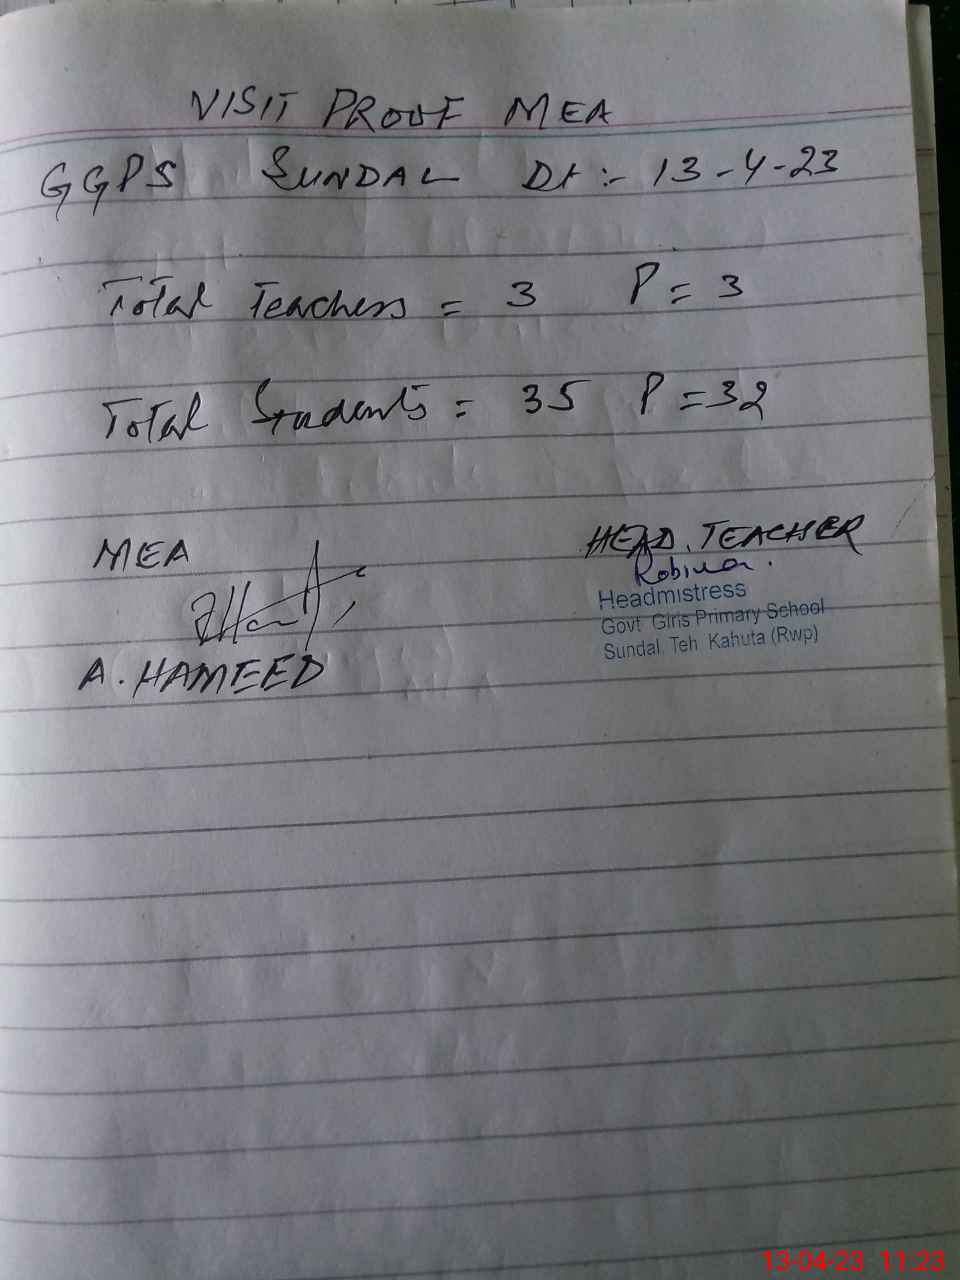 VISIT PROOF MEA
GGPS SUNDAL Dt:- 13-4-23
Total Teachers = 3 P = 3
Total Students = 35 P = 32
MEA
HEAD. TEACHER
Robina.
Headmistress
Govt Girls Primary School
Sundal, Teh Kahuta (Rwp)
A. HAMEED
13-04-23 11:23